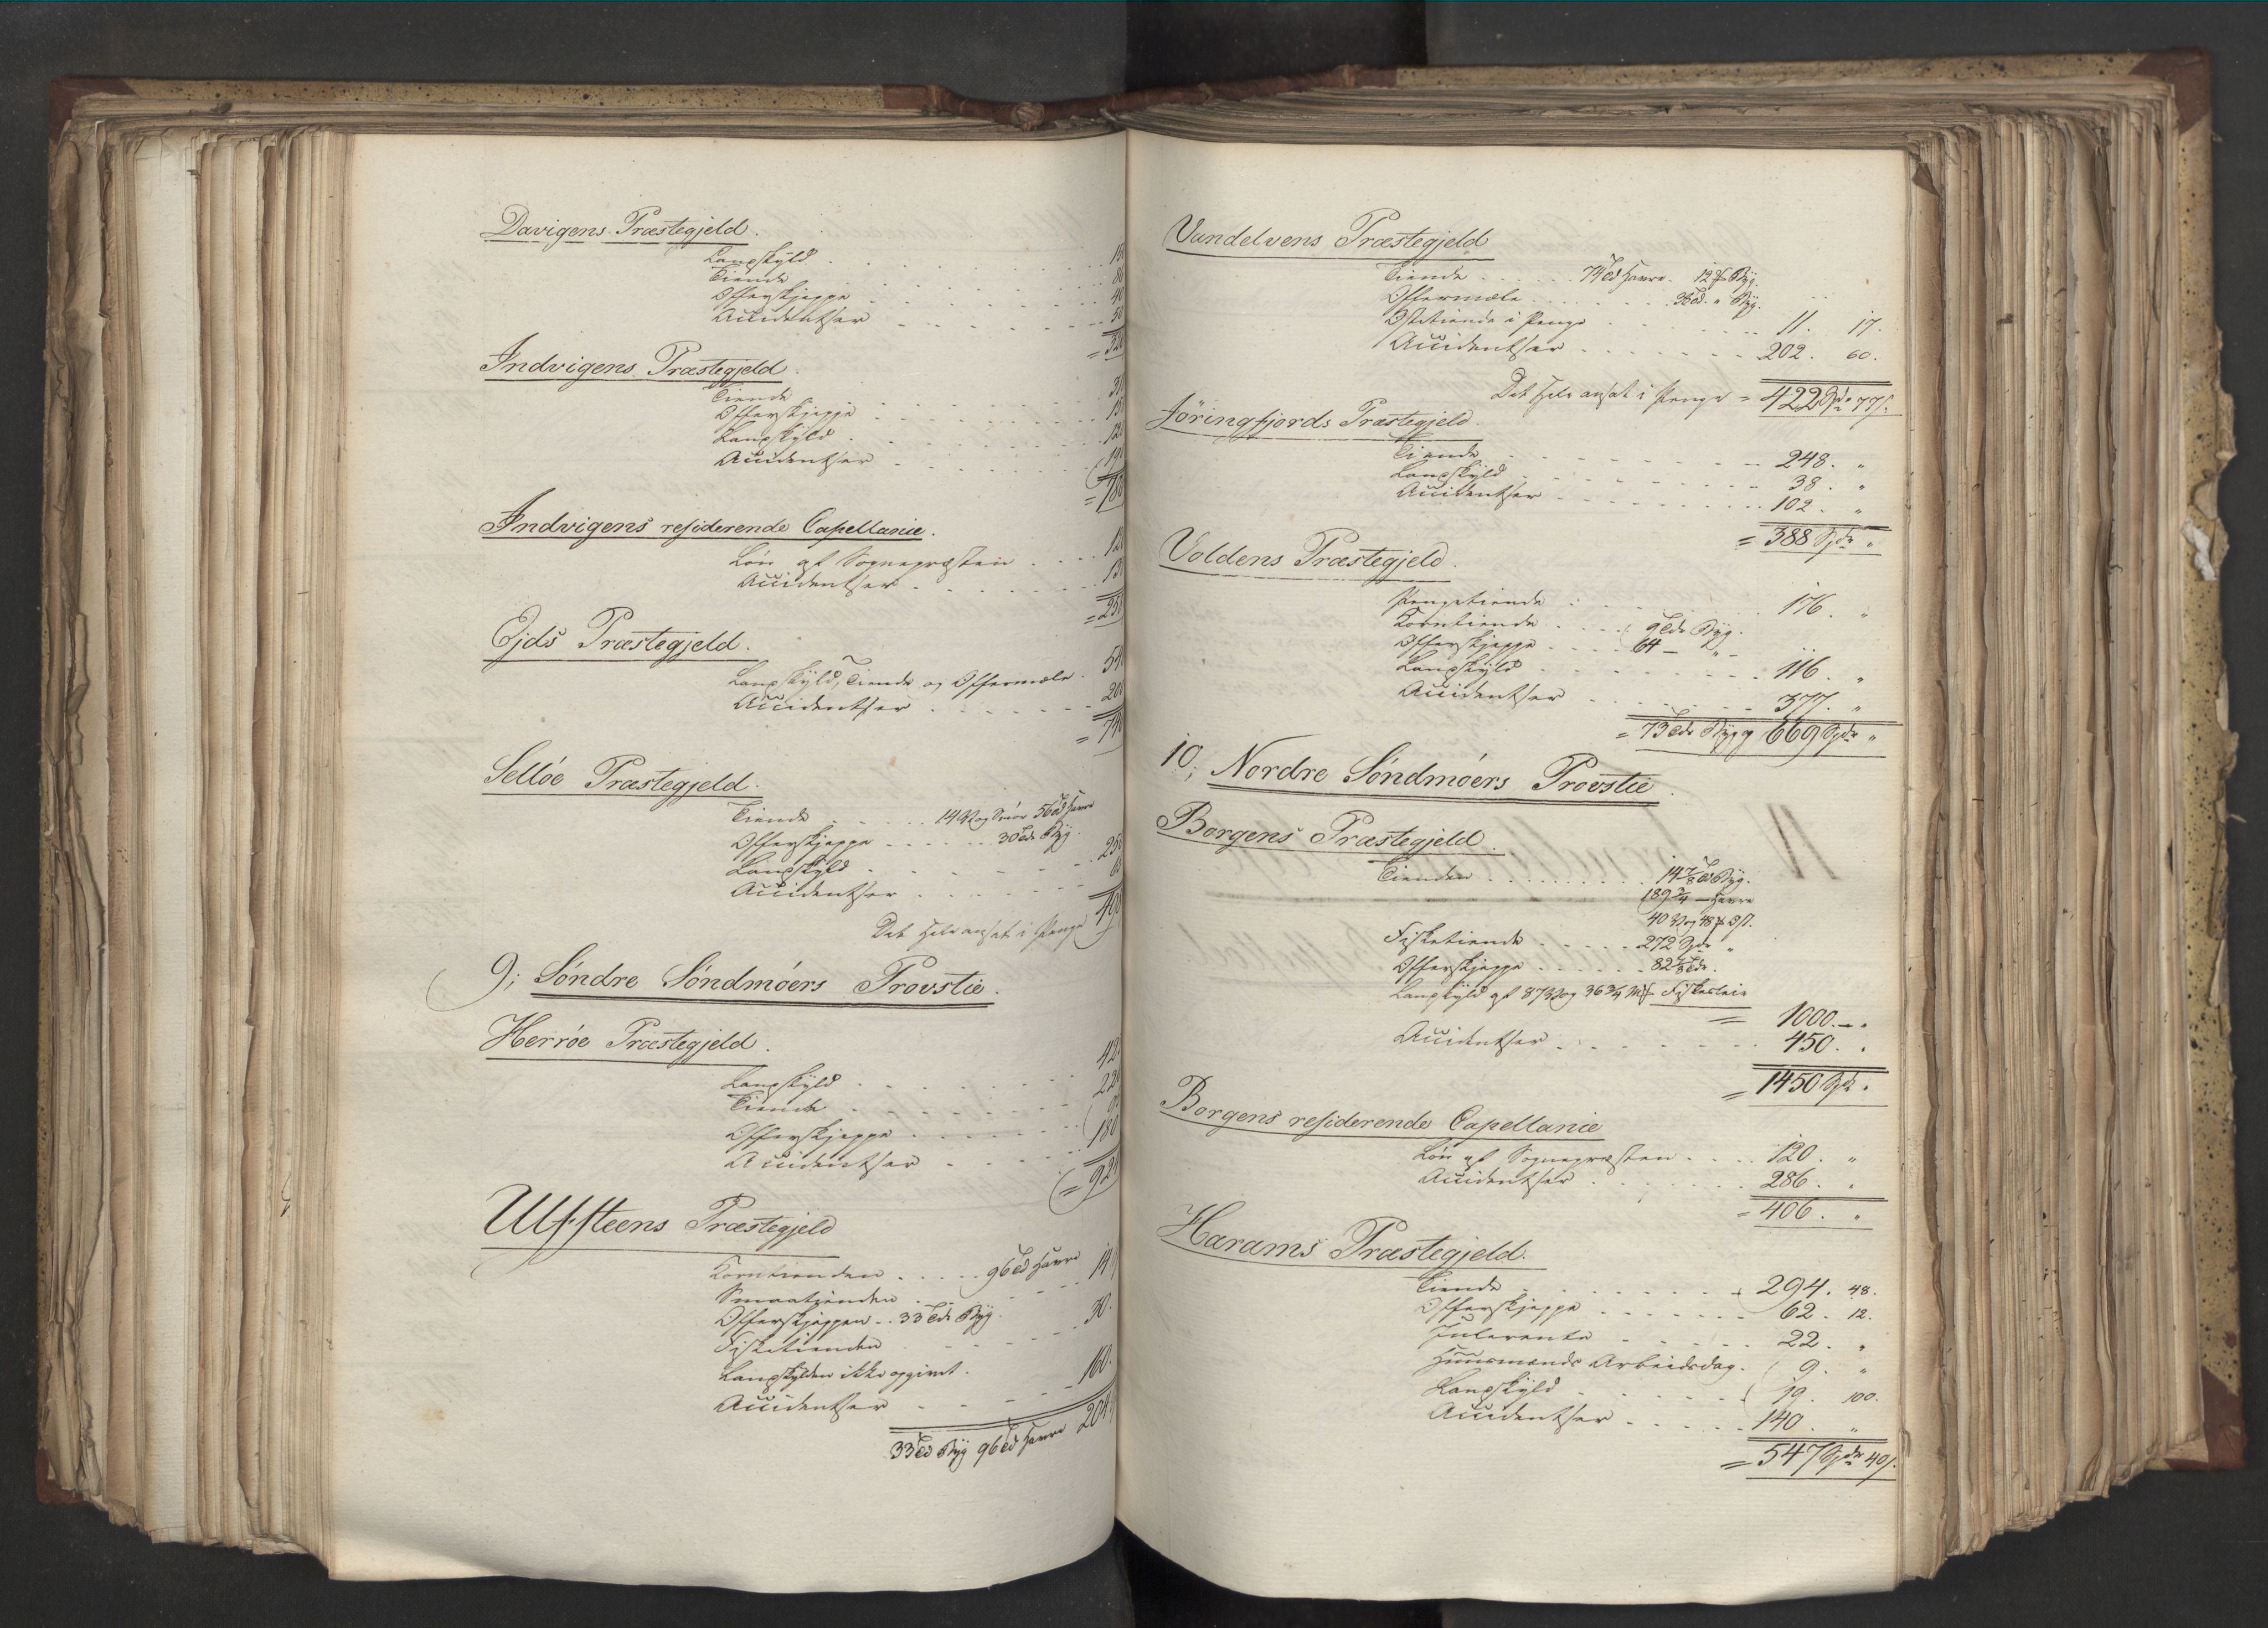 Davigens Præstegjeld.
Landskyld . . . 15
Tiende . . . 80
Offerskjeppe . . . 40
Accidentser . . . 50
= 320
Indvigens Præstegjeld.
Tiende . . . 31
Offerskjeppe . . . 15
Landskyld . . . 12
Accidentser . . . 19
= 780
Indvigens residerende Capellanie.
Løn af Sognepræsten . . . 12
Accidentser . . . 13
= 250
Ejds Præstegjeld.
Landskyld, Tiende og Offermæle . 54
Accidentser . . . 20
= 74
Selløe Præstegjeld.
Tiende . . . 14 Vog Smør 56 Td Havre
Offerskjeppe . . . 30 Tdr Byg.
Landskyld . . . 25
Accidentser . . . 6
Det Hele ansat i Penge 490
9; Søndre Søndmøers Provstie.
Herrøe Præstegjeld.
Landskyld . . . 42
Tiende . . . 22
Offerskjeppe . . . 9
Accidentser . . . 180
= 92
Ulfsteens Præstegjeld
Korntienden . . . 96 Td Havre
Smaatienden . . . 14
Offerskjeppen . . 33 Tdr Byg.
Fisketienden . . . 30.
Landskylden ikke opgivet.
Accidentser . . . 160.
33 Td Byg 96 Td Havre 204
Vandelvens Præstegjeld
Tiende . . . 74 Td Havre. 12 Byg.
Offermæle . . . 36 Td. " Byg.
Ostetiende i Penge . . . 11. 17.
Accidentser . . . 202. 60.
Det Hele ansat i Penge = 422 Spd 77 s.
Jøringfjords Præstegjeld.
Tiende . . . 248. "
Landskyld . . . 38. "
Accidentser . . . 102. "
= 388 Spdr "
Voldens Præstegjeld.
Pengetiende . . . 176. "
Korntiende . . . 9 Tdr Byg.
Offerskjeppe . . . 64 — " —
Landskyld . . . 116. "
Accidentser . . . 377. "
= 73 Tdr Byg og 669 Spdr "
10; Nordre Søndmøers Provstie.
Borgens Præstegjeld.
Tienden . . . 14 7/8 Td Byg.
189 3/4 — Havre
40 Vog 48
Fisketiende . . . 272 Spdr "
Offerskjeppe . . . 82 Tdr.
Landskyld af 87 Vog 36 3/4 Fiskeleie
= 1000. — "
Accidentser . . . 450. "
= 1450 Spdr.
Borgens residerende Capellanie
Løn af Sognepræsten . . . 120. "
Accidentser . . . 286. "
= 406. "
Harams Præstegjeld.
Tiende . . . 294. 48.
Offerskjeppe . . . 62. 12.
Julerente . . . 22. "
Huusmænds Arbeidsdag. 9. "
Landskyld . . . 19. 100.
Accidentser . . . 140. "
= 547 Spdr 40 s.